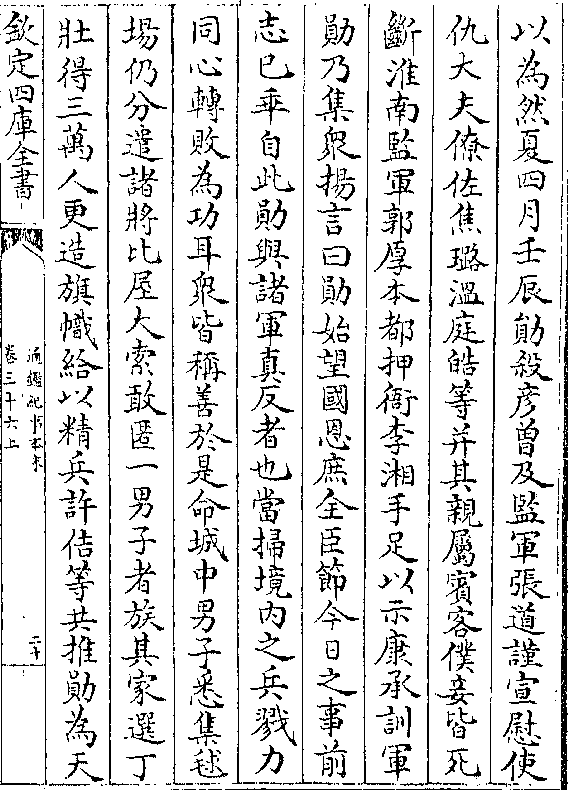 以為然夏四月壬辰勛殺彦曽及監軍張道謹宣慰使
仇大夫僚佐焦璐溫庭皓等并其親屬賓客僕妾皆死
斷淮南監軍郭厚本都押衙李湘手足以示康承訓軍
勛乃集衆揚言曰勛始望國恩庶全臣節今日之事前
志已乖自此勛與諸軍真反者也當掃境内之兵戮力
同心轉敗為功耳衆皆稱善於是命城中男子悉集毬
場仍分遣諸將比屋大索敢匿一男子者族其家選丁
壯得三萬人更造旗幟給以精兵許佶等共推勛為天
欽定四庫全書
通鑑紀事本末
卷三十六上
二十